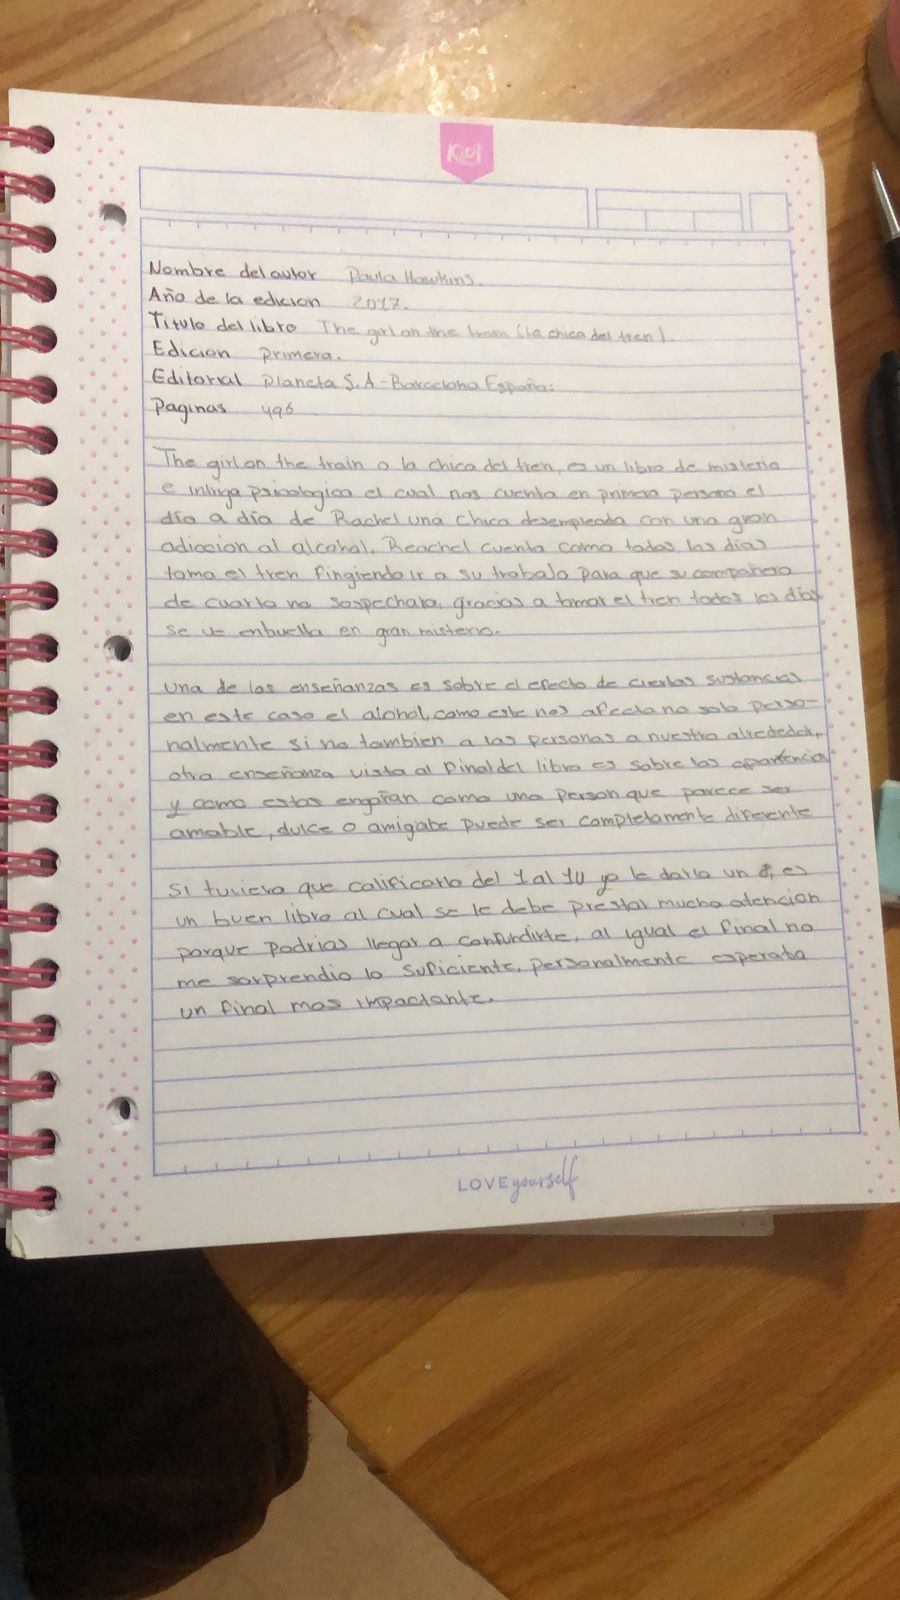 KUT
Nombre del autor Paula Hawkins.
Año de la edicion 2017.
Titulo del libro The girl on the train (la chica del tren).
Edicion primera.
Editorial Planeta S.A-Barcelona España.
Paginas 496
The girl on the train o la chica del tren, es un libro de misterio
e intriga psicologica el cual nos cuenta en primera persona el
día a día de Rachel una chica desempleada con una gran
adiccion al alcohol. Reachel cuenta como todos los días
toma el tren fingiendo ir a su trabajo para que su compañera
de cuarto no sospechara, gracias a tomar el tren todos los días
se ve enbuelta en gran misterio.
una de las enseñanzas es sobre el efecto de ciertas sustancias
en este caso el alcohol, como este nos afecta no solo perso-
nalmente si no tambien a las personas a nuestro alrededor,
otra enseñanza vista al final del libro es sobre las apariencia
y como estas engañan como una person que parece ser
amable, dulce o amigabe puede ser completamente diferente
Si tuviera que calificarlo del 1 al 10 yo le daria un 8, es
un buen libro al cual se le debe prestar mucha atencion
porque podrias llegar a confundirte, al igual el final no
me sorprendio lo suficiente, personalmente esperaba
un final mas impactante.
LOVE yourself